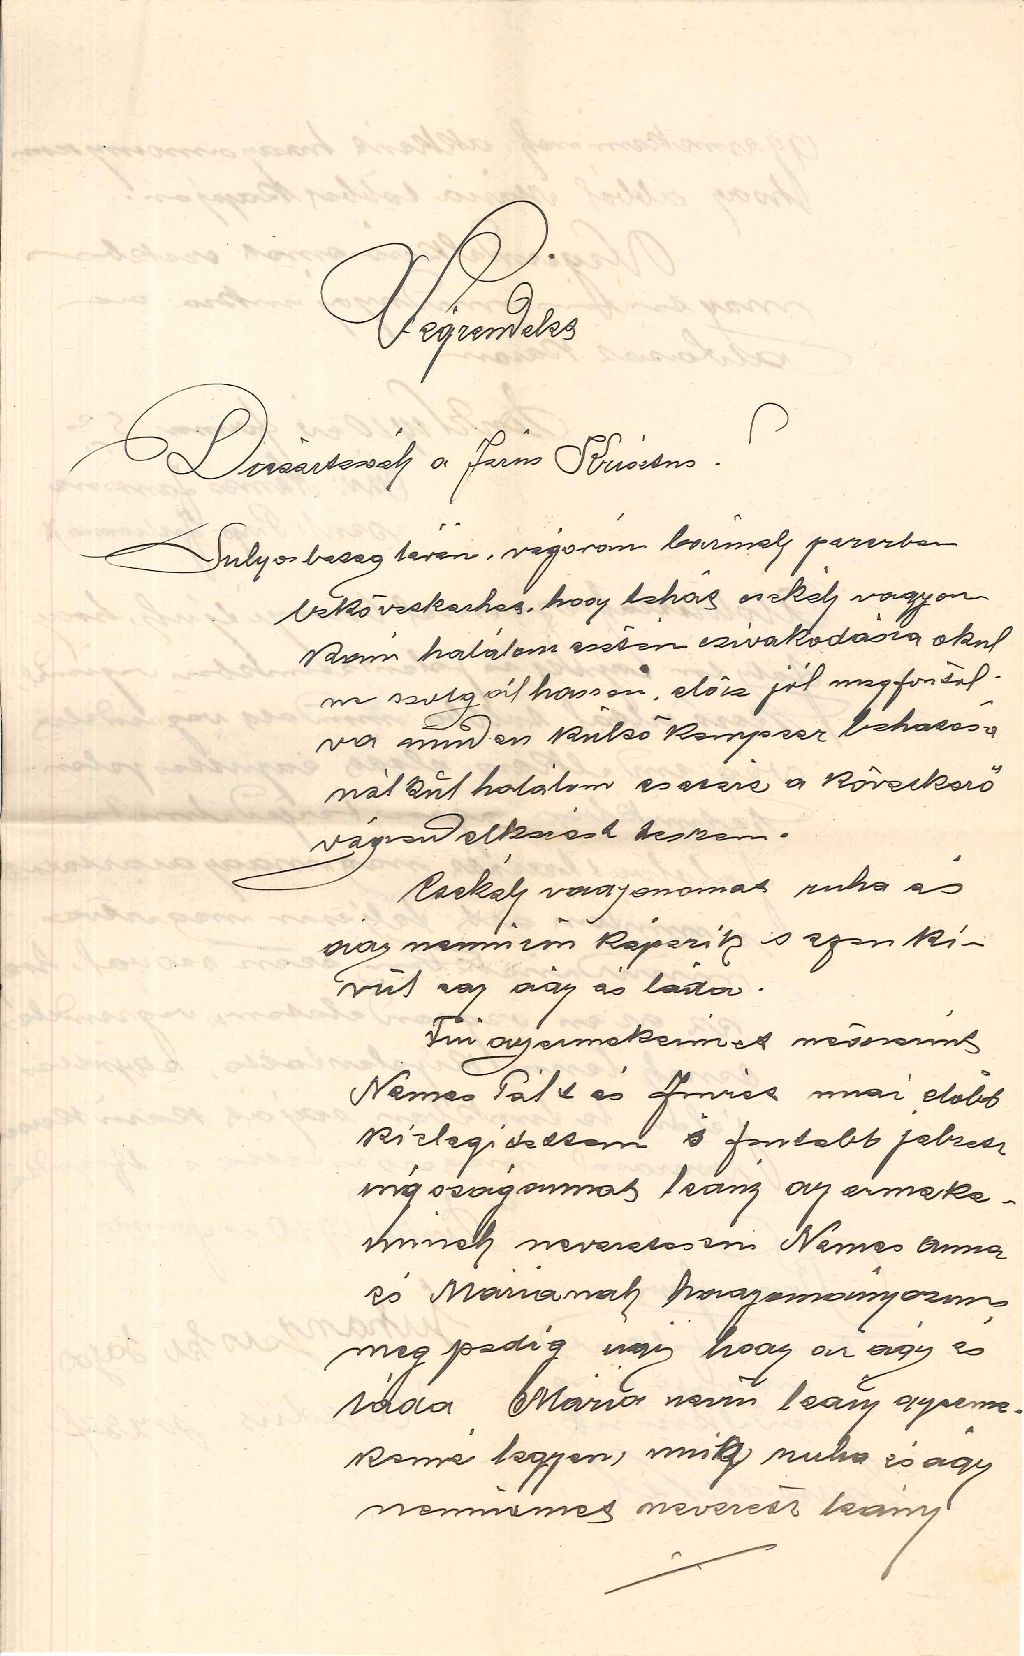 Végrendelet
Dicsértessék a Jézus Krisztus!
Sulyos beteg lévén, végórám bármely percben
bekövetkezhet, hogy tehát csekély vagyon
kám halálom esetén czivakodásra okul
ne szolgálhasson, előre jól megfontol-
va minden külső kényszer behatása
nélkül halálom esetére a következő
végrendelkezést teszem.
Csekély vagyonomat ruha és
ágynemüim képezik s ezen ki-
vül egy ágy és láda.
Fiu gyermekeimet névszerint
Nemes Pált és Imrét már előbb
kielegitettem s fentebb jelzett
ingóságaimat leány gyermeke-
imnek nevezetesen Nemes Anna
és Máriának hagyományozom
meg pedig ugy hogy az ágy és
láda Mária nevü leány gyerme-
kemé legyen, mig ruha és ágy
nemüimet nevezett leány